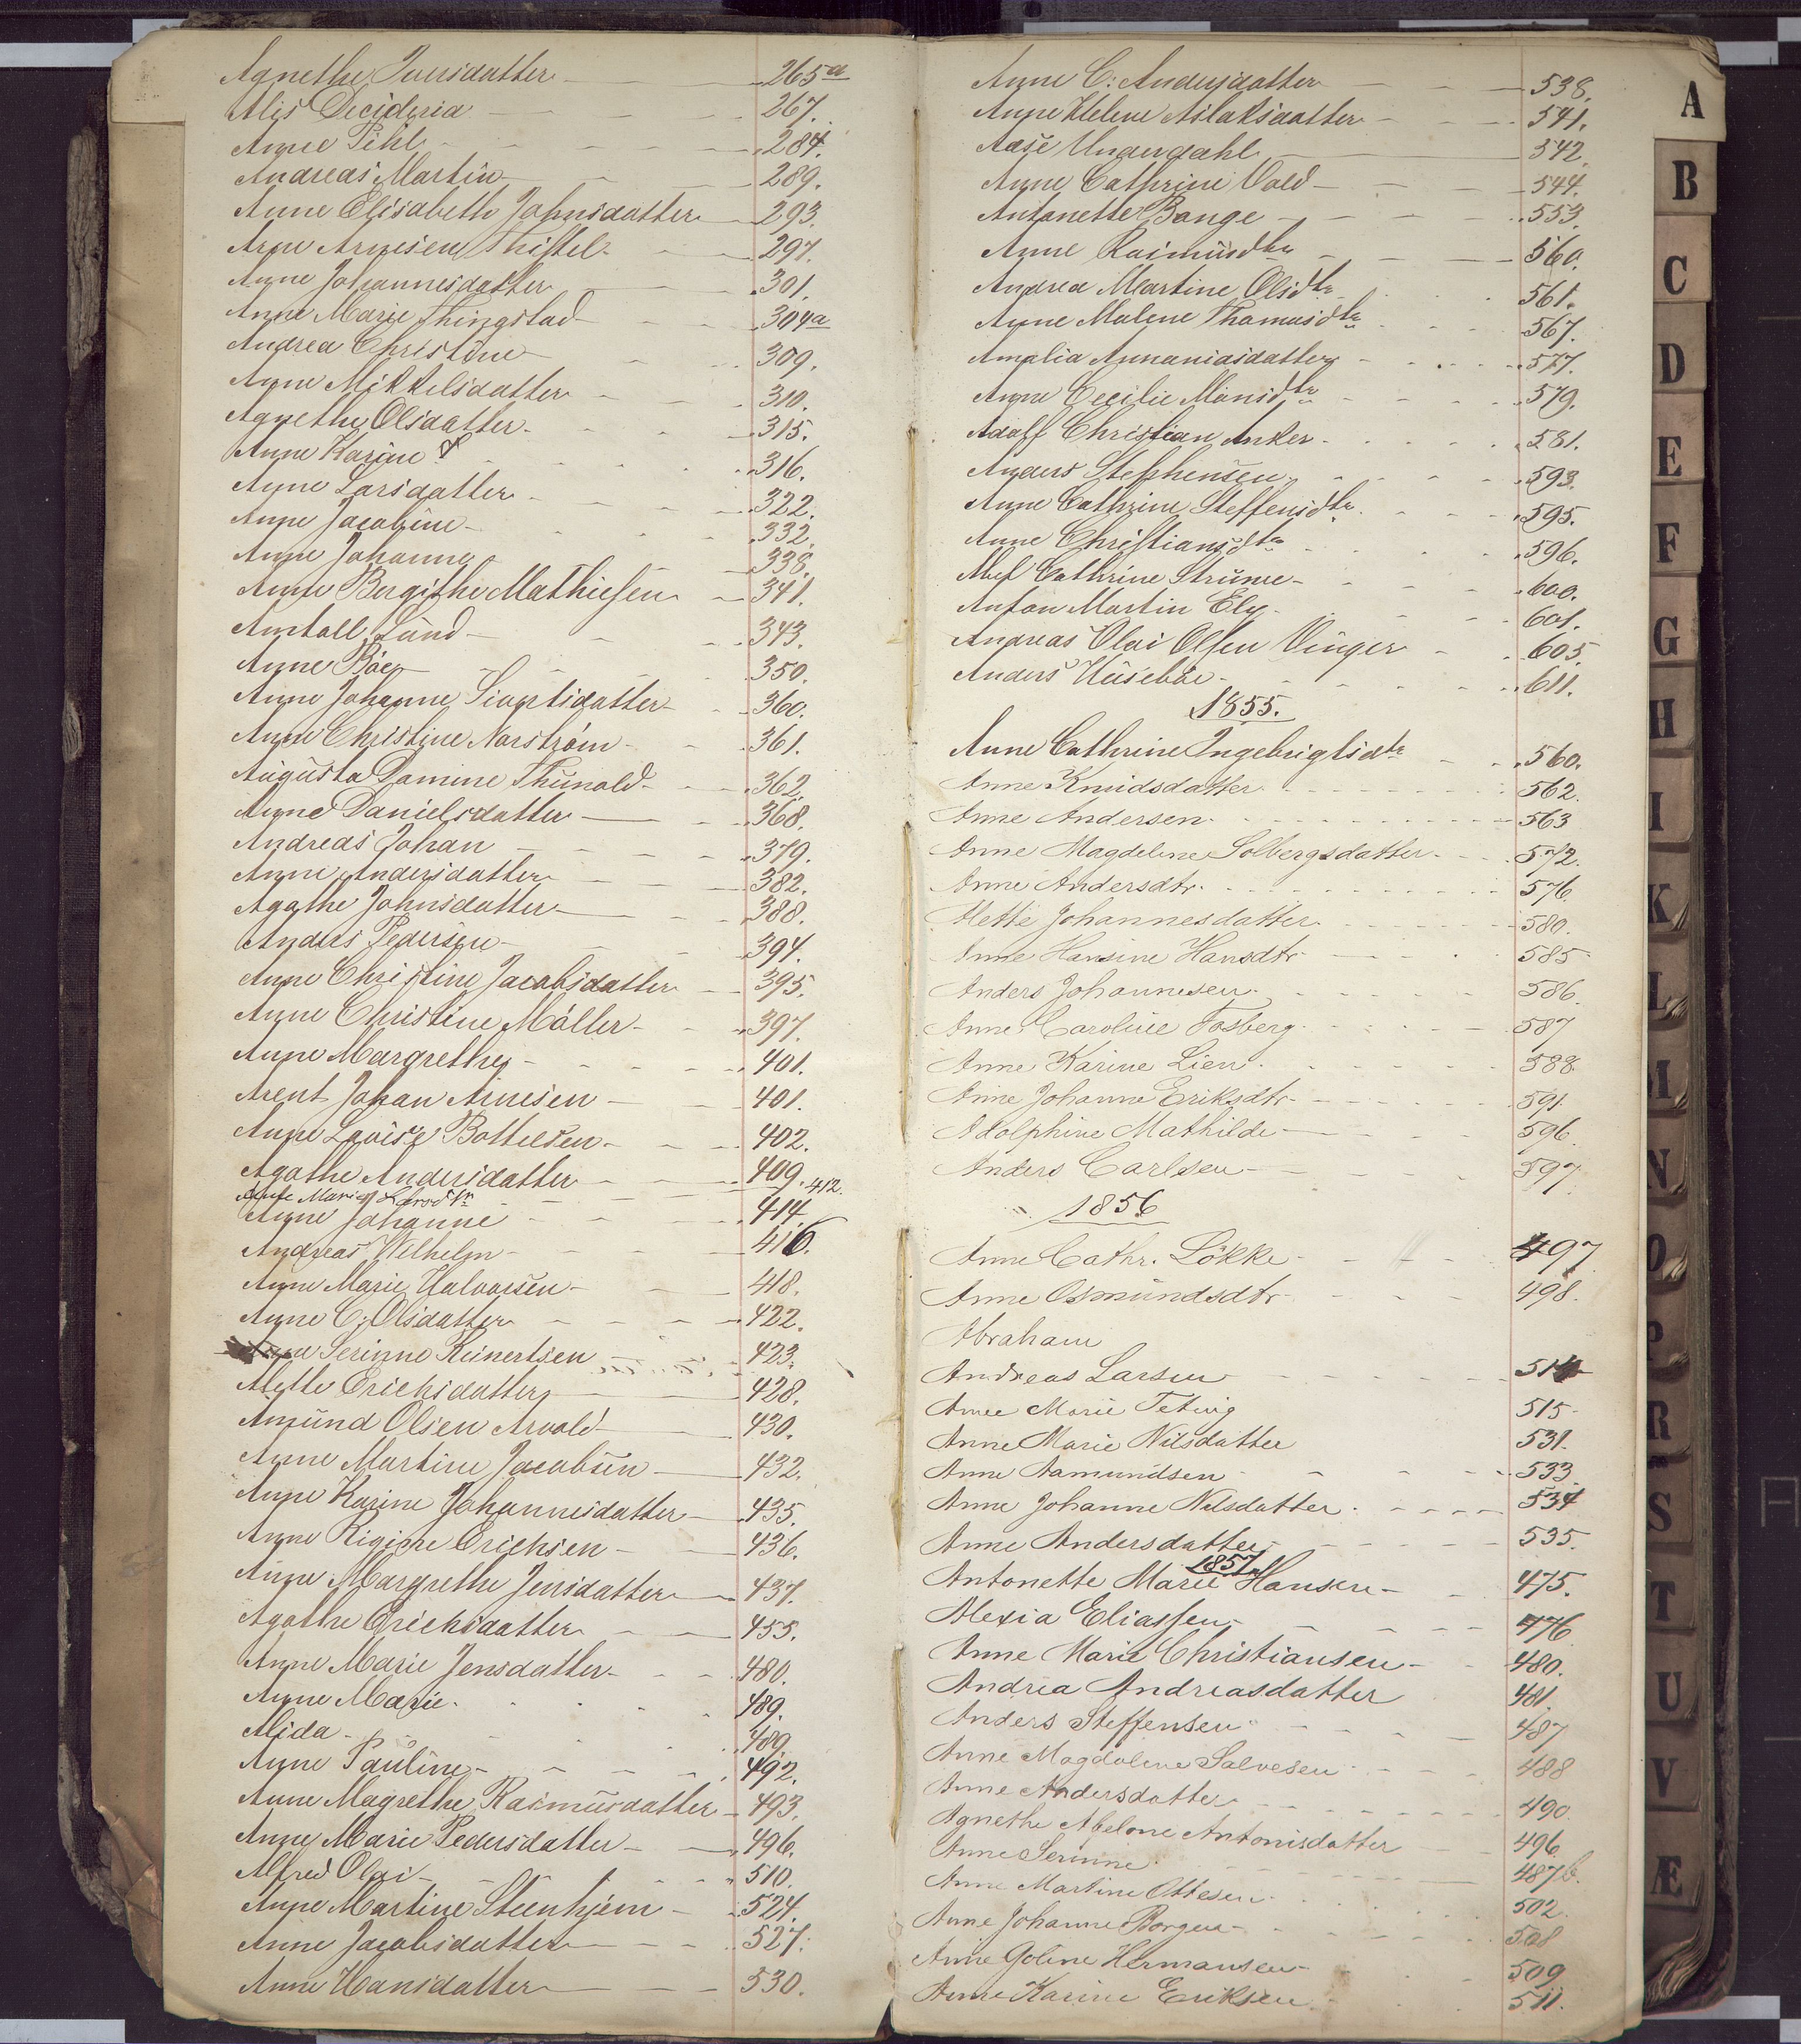 Agnethe Iversdatter 265a
Alis Decideria 267.
Anne Pihl 284.
Andreas Martin 289.
Anne Elisabeth Johnsdatter 293.
Arne Arnesen Thistel 297.
Anne Johannesdatter 301.
Anne Marie Thingstad 304a
Andrea Christine 309.
Anne Mikkelsdatter 310.
Agnethe Olsdatter 315.
Anne Karine 316.
Anne Larsdatter 322.
Anne Jacobine 332.
Anne Johanne 338.
Anne Bergithe Mathiesen 341.
Lund 343.
Anne Böe 350.
Anne Johanne Sivertsdatter 360.
Anne Christine Norström 361.
Augusta Damine Thunold 362.
Anne Danielsdatter 368.
Andreas Johan 379.
Anne Andersdatter 382.
Agathe Johnsdatter 388.
Anders Pedersen 394.
Anne Christine Jacobsdatter 395.
Anne Christine Möller 397.
Anne Margrethe 401.
Arent Johan Arnesen 401.
Anne Lovise Bottelsen 402.
Agathe Andersdatter 409.
Anne Marie 412.
Anne Johanne 414
Andreas Wilhelm 416.
Anne Marie Halvorsen 418.
Anne C. Olsdatter 422.
Serinne Reinertsen 423.
Alette Erichsdatter 428.
Amund Olsen Arvold 430.
Anne Martine Jacobsen 432.
Anne Karine Johannesdatter 435.
Anne Rigine Erichsen 436.
Anne Margrethe Jensdatter 437.
Agathe Erichsdatter 455.
Anne Marie Jensdatter 480.
Anne Marie 489.
Alida 489.
Anne Pauline 492.
Anne Magrethe Rasmusdatter 493.
Anne Marie Pedersdatter 496.
Alfred Olai 510.
Anne Martine Steenhjem 524.
Anne Jacobsdatter 527.
Anne Hansdatter 530.
Anne C. Andersdatter 538.
Anne Helene Aslaksdatter 541.
Aase Underdahl 542.
Anne Cathrine Vold 544.
Antonette Bange 553.
Anne Rasmusdtr 560.
Andrea Martine Olsdtr 561.
Anne Malene Thomasdtr 567.
Amalia Annaniasdatter 577.
Anne Cecilie Monsdtr 579.
Adolf Christian Anker 581.
Anders Stephensen 593.
Anne Cathrine Steffensdtr 595.
Anne Christiansdtr 596.
Cathrine Strume 600.
Anton Martin Ely 601.
Andreas Olai Olsen Vinger 605.
Anders Huseböe 611.
1855.
Anne Cathrine Ingebrigtsdtr 560.
Anne Knudsdatter 562.
Anne Andersen 563
Anne Magdelene Solbergsdatter 572.
Anne Andersdtr. 576.
Mette Johannesdatter 580.
Anne Hansine Hansdtr 585
Anders Johannesen 586.
Anne Caroline Fosberg 587
Anne Karine Lien 588.
Anne Johanne Eriksdtr 591.
Adolphine Mathilde 596.
Anders Carlsen 597.
1856
Anne Cathr. Lökke 497
Anne Osmundsdtr 498.
Abraham
Andreas Larsen 514
Anne Marie Tetwig 515
Anne Marie Nilsdatter 531.
Anne Aamundsen 533
Anne Johanne Nilsdatter 534
Anne Andersdatter 535.
1857
Antonette Marie Hansen 475.
Alexia Eliassen 476
Anne Marie Christiansen 480.
Andrea Andreasdatter 481.
Anders Steffensen 487
Anne Magdalene Salvesen 488
Anne Andersdatter 490.
Agnethe Abelone Antonisdatter 496.
Anne Serinne 487b.
Anne Martine Ottesen 502.
Anne Johanne Borgen 508
Anne Goline Hermansen 509
Anne Karine Eriksen 511.
A
B
C
D
E
F
G
H
I
K
L
M
N
O
P
R
S
T
U
V
Æ